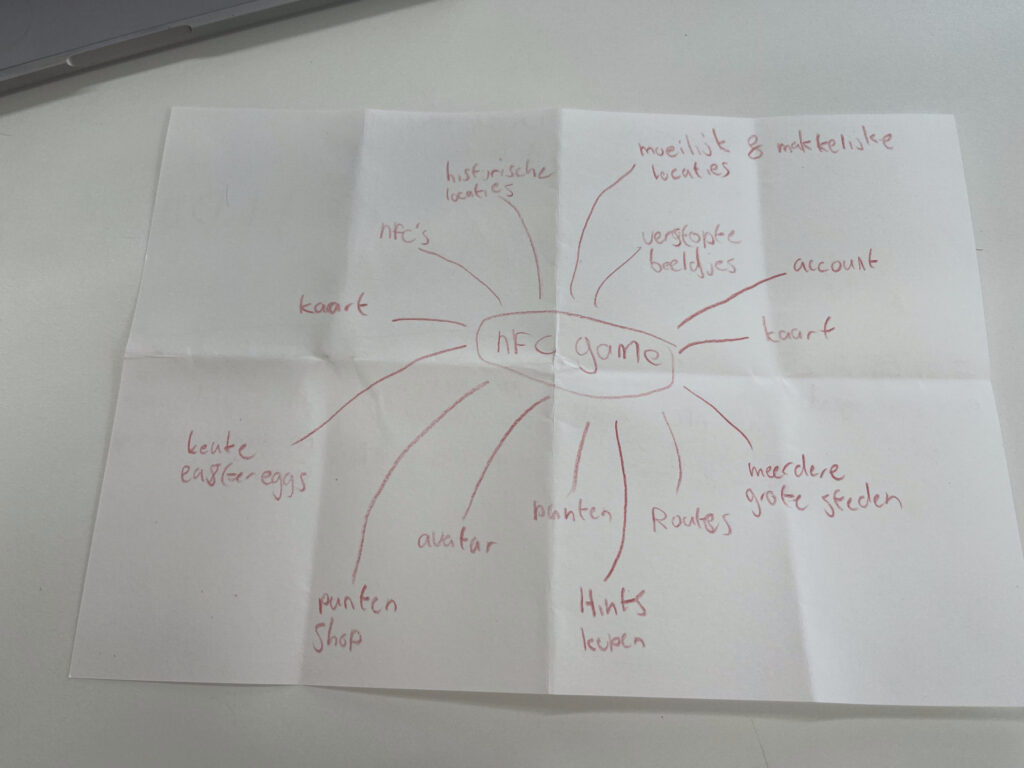 moeilijk & makkelijke
locaties
historische
locaties
nFC's
verstopte
beeldjes
account
kaart
kaart
nFC game
leute
easter eggs
meerdere
grote steden
punten
Routes
avatar
punten
shop
Hints
kopen